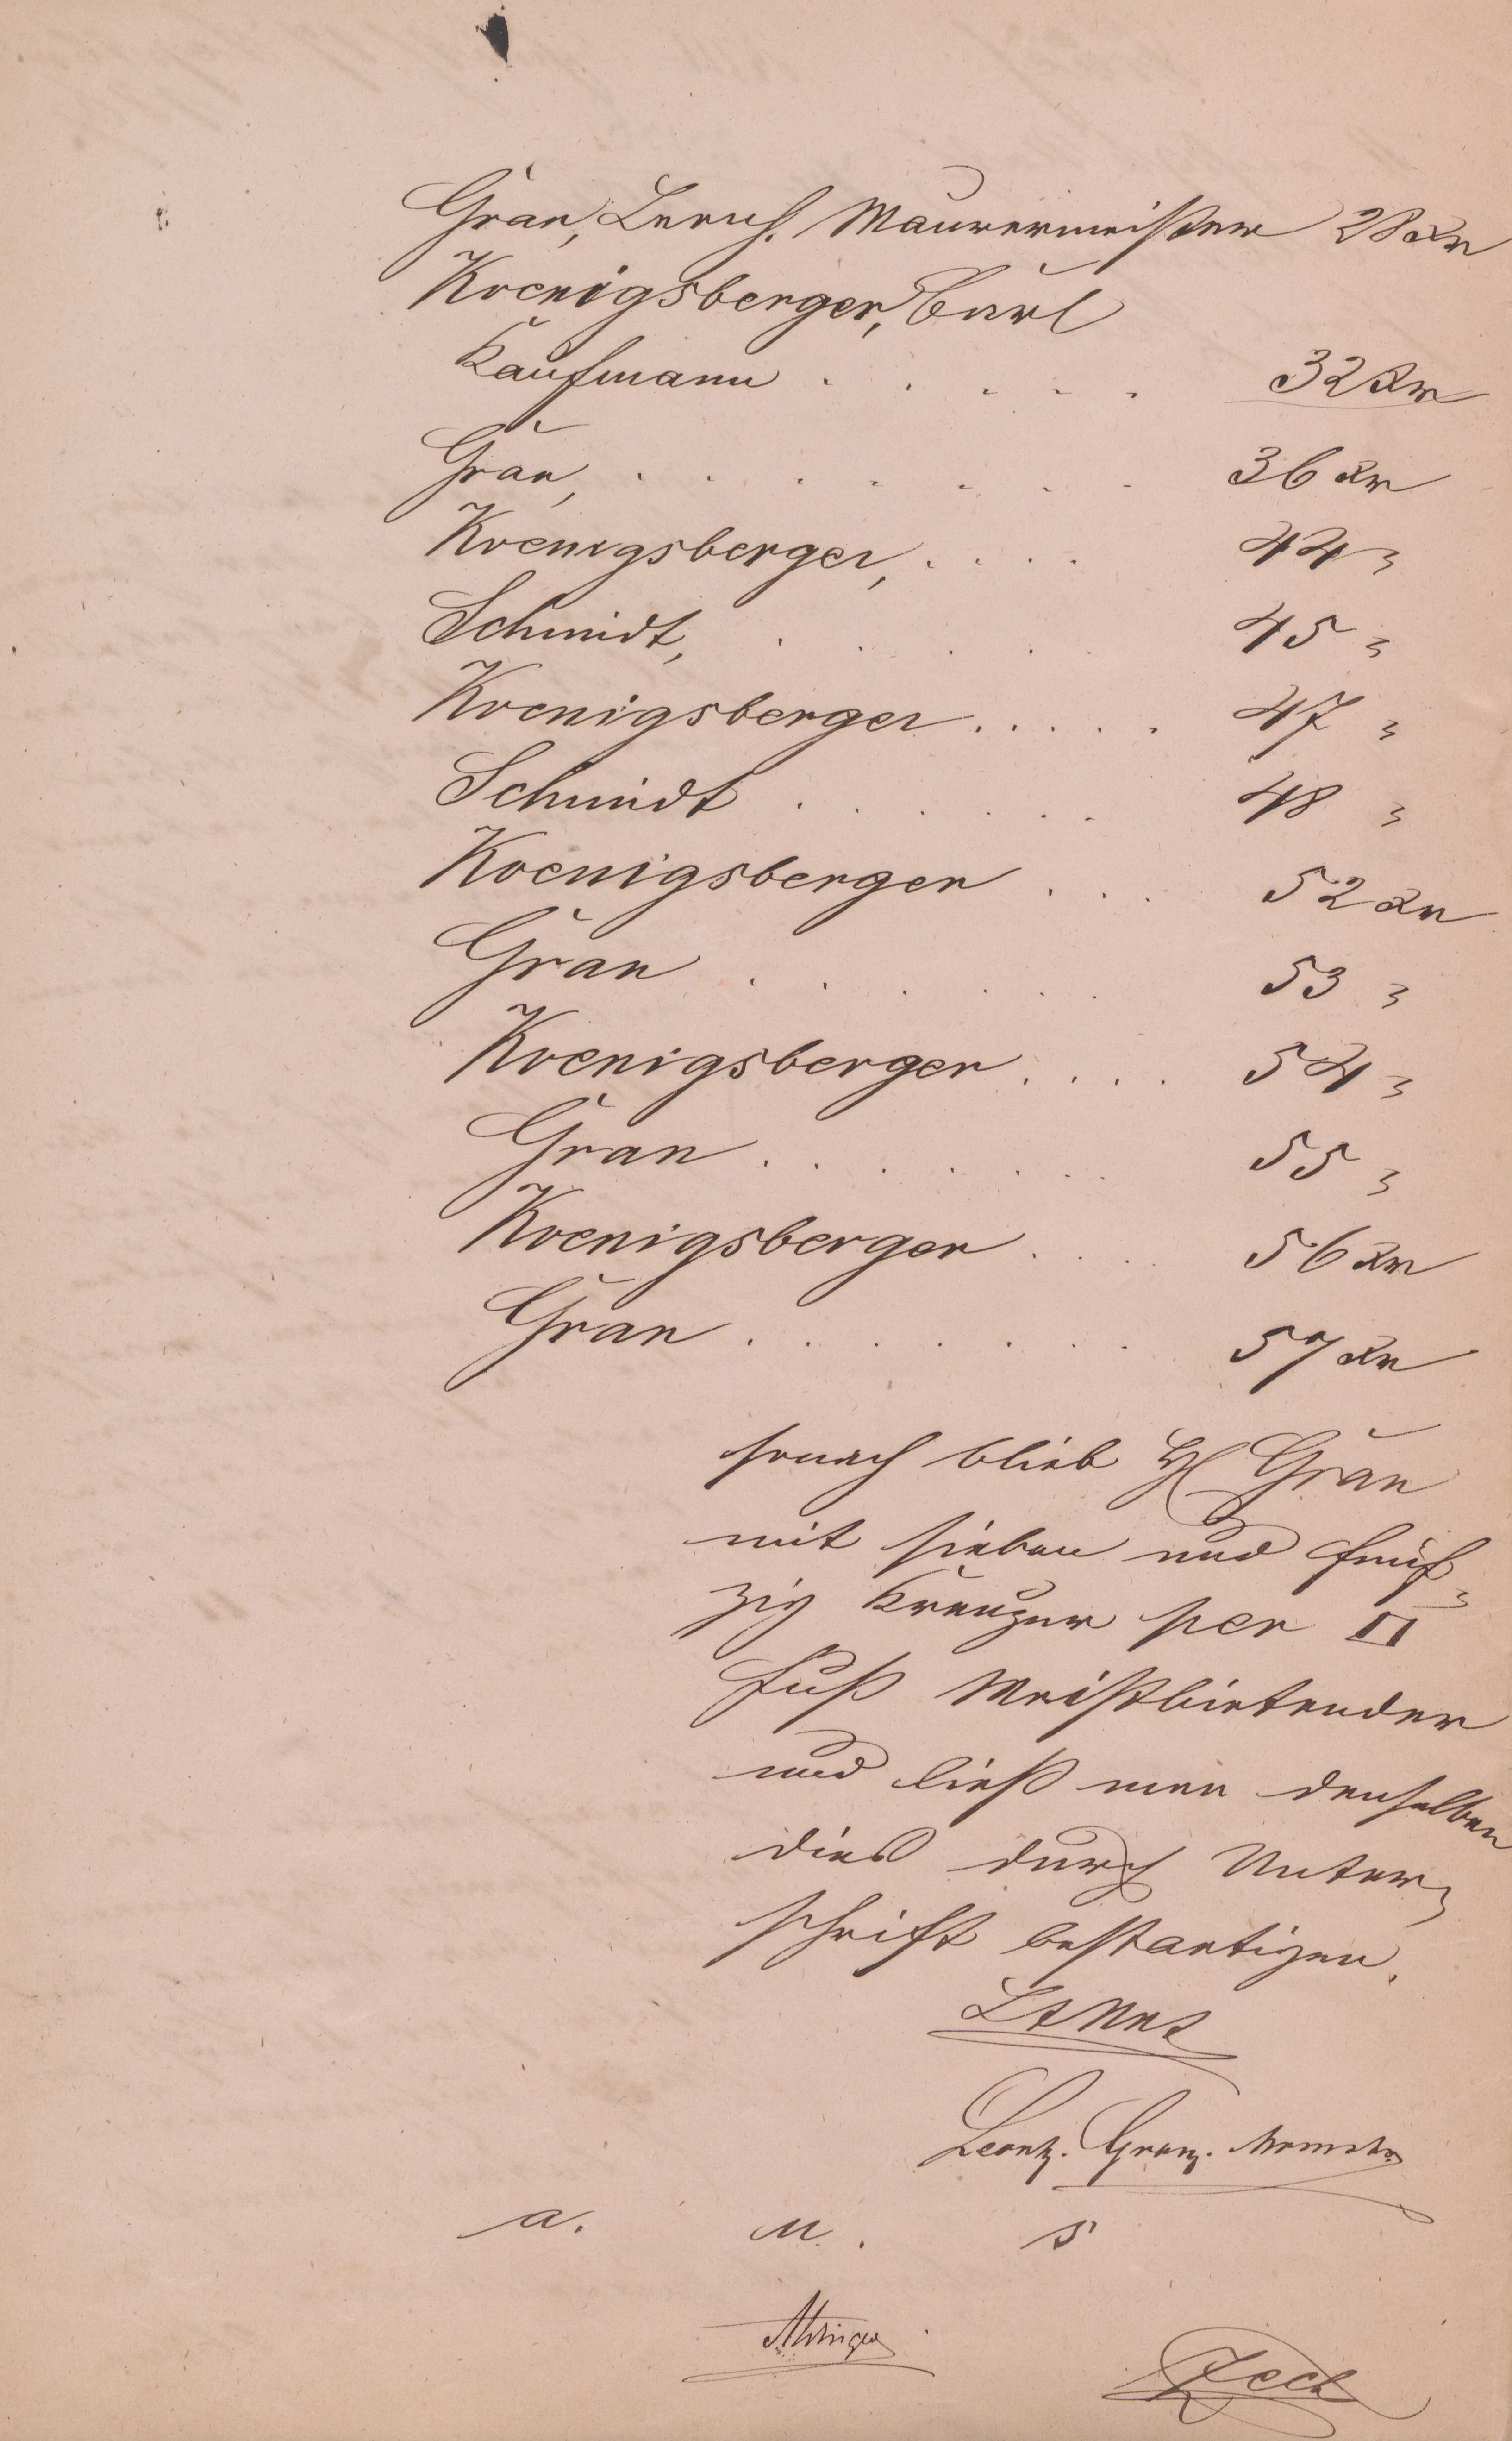 Grau, Leonh. Maurermeister 28 Kr
Koenigsberger, Carl
Kaufmann . . . . . 32 Kr
Grau, . . . . . . . 36 Kr
Koenigsberger, . . . . 44 "
Schmidt, . . . . . 45 "
Koenigsberger . . . . . 47 "
Schmidt . . . . . . 48 "
Koenigsberger . . . 52 Kr
Grau . . . . . . 53 "
Koenigsberger . . . . 54 "
Grau . . . . . . . 55 "
Koenigsberger . . . 56 Kr
Grau . . . . . . . 57 Kr
sonach blieb H. Grau
mit sieben und fünf-
zig Kreuzer per □
Fuß Meistbietender
und ließ man denselben
dies durch Unter-
schrift bestaetigen.
Leonh. Grau.
a. u. s
Zech